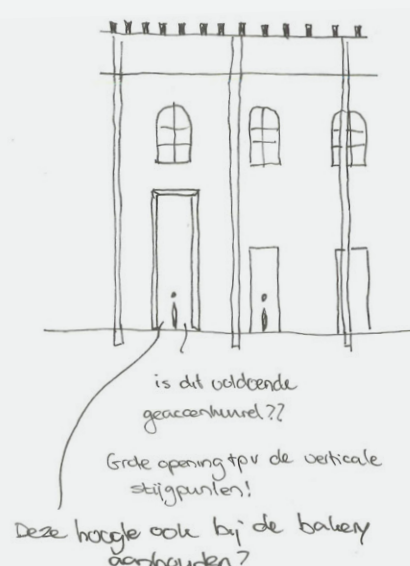 is dit voldoende
geaccentueerd??
Grote opening tpv de verticale
stijgpunten!
Deze hoogte ook bij de bakery
aanhouden?